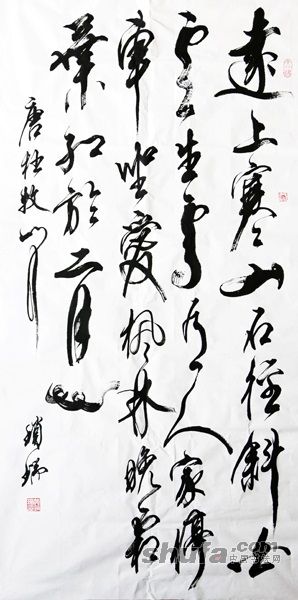 遠上寒山石徑斜白
雲生處有人家停
車坐愛楓林晚霜
葉紅於二月花
唐杜牧山行
shufa.com